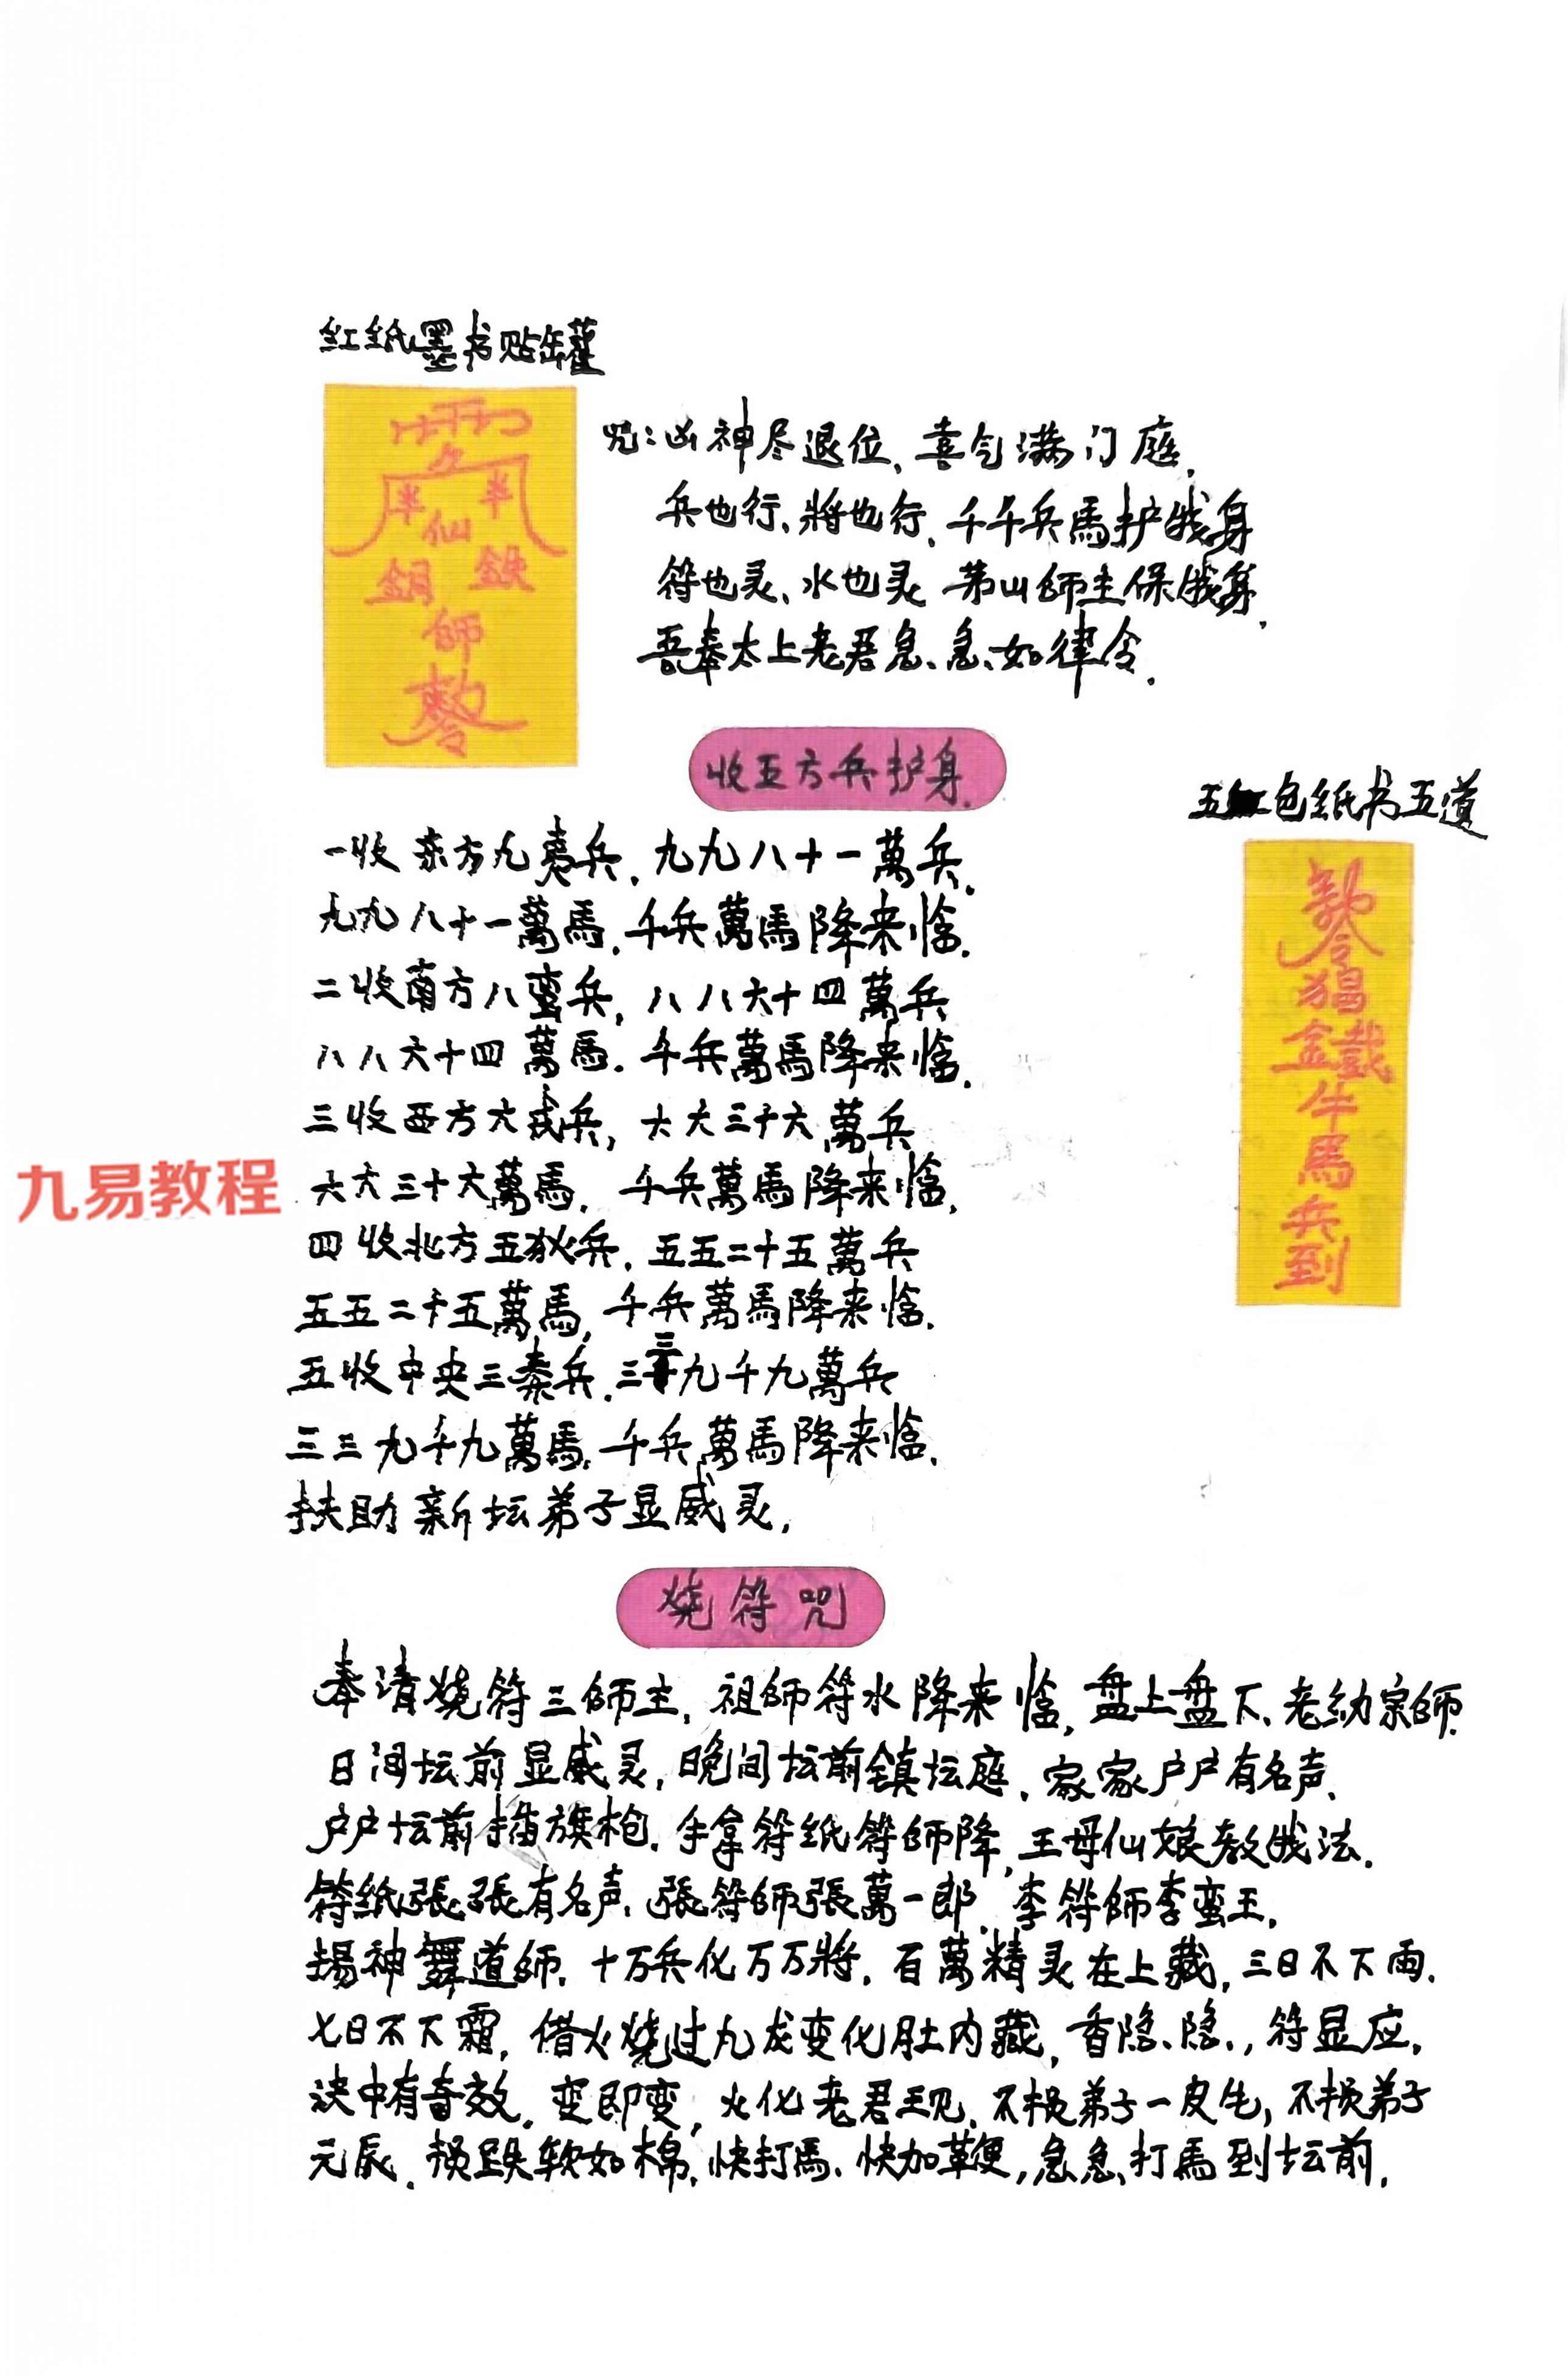 红纸墨书贴罐
半 半
仙
銅 鉄
師
敕令
咒:凶神尽退位、喜气满门庭.
兵也行、將也行、千千兵馬护我身
符也灵、水也灵 茅山師主保我身.
吾奉太上老君急、急、如律令.
收五方兵护身.
五色纸书五道
敕令
猖
金戠
牛
馬
兵
到
一收东方九夷兵.九九八十一萬兵.
九九八十一萬馬.千兵萬馬降来临.
二收南方八蛮兵,八八六十四萬兵
八八六十四萬馬.千兵萬馬降来临.
三收西方六戎兵,六六三十六萬兵
六六三十六萬馬.千兵萬馬降来临.
四收北方五狄兵.五五二十五萬兵
五五二十五萬馬,千兵萬馬降来临.
五收中央三秦兵.三三九千九萬兵
三三九千九萬馬.千兵萬馬降来临.
扶助新坛弟子显威灵,
九易教程
烧符咒
奉请烧符三師主,祖師符水降来临,盘上盘下、老幼宗師.
日间坛前显威灵,晚间坛前鎮坛庭.家家户户有名声.
户户坛前插旗枪.手拿符纸符師降,王母仙娘教我法.
符纸張張有名声.張符師張萬一郎.李符師李蛮王.
揚神舞道師.十万兵化万万將.百萬精灵在上藏,三日不下雨.
七日不下霜,借火烧过九龙变化肚内藏,香隐、隐、,符显应.
決中有奇效.变即变,火化老君王见.不损弟子一皮毛,不损弟子
元辰.软如棉.快打馬.快加鞭,急急、打馬到坛前.